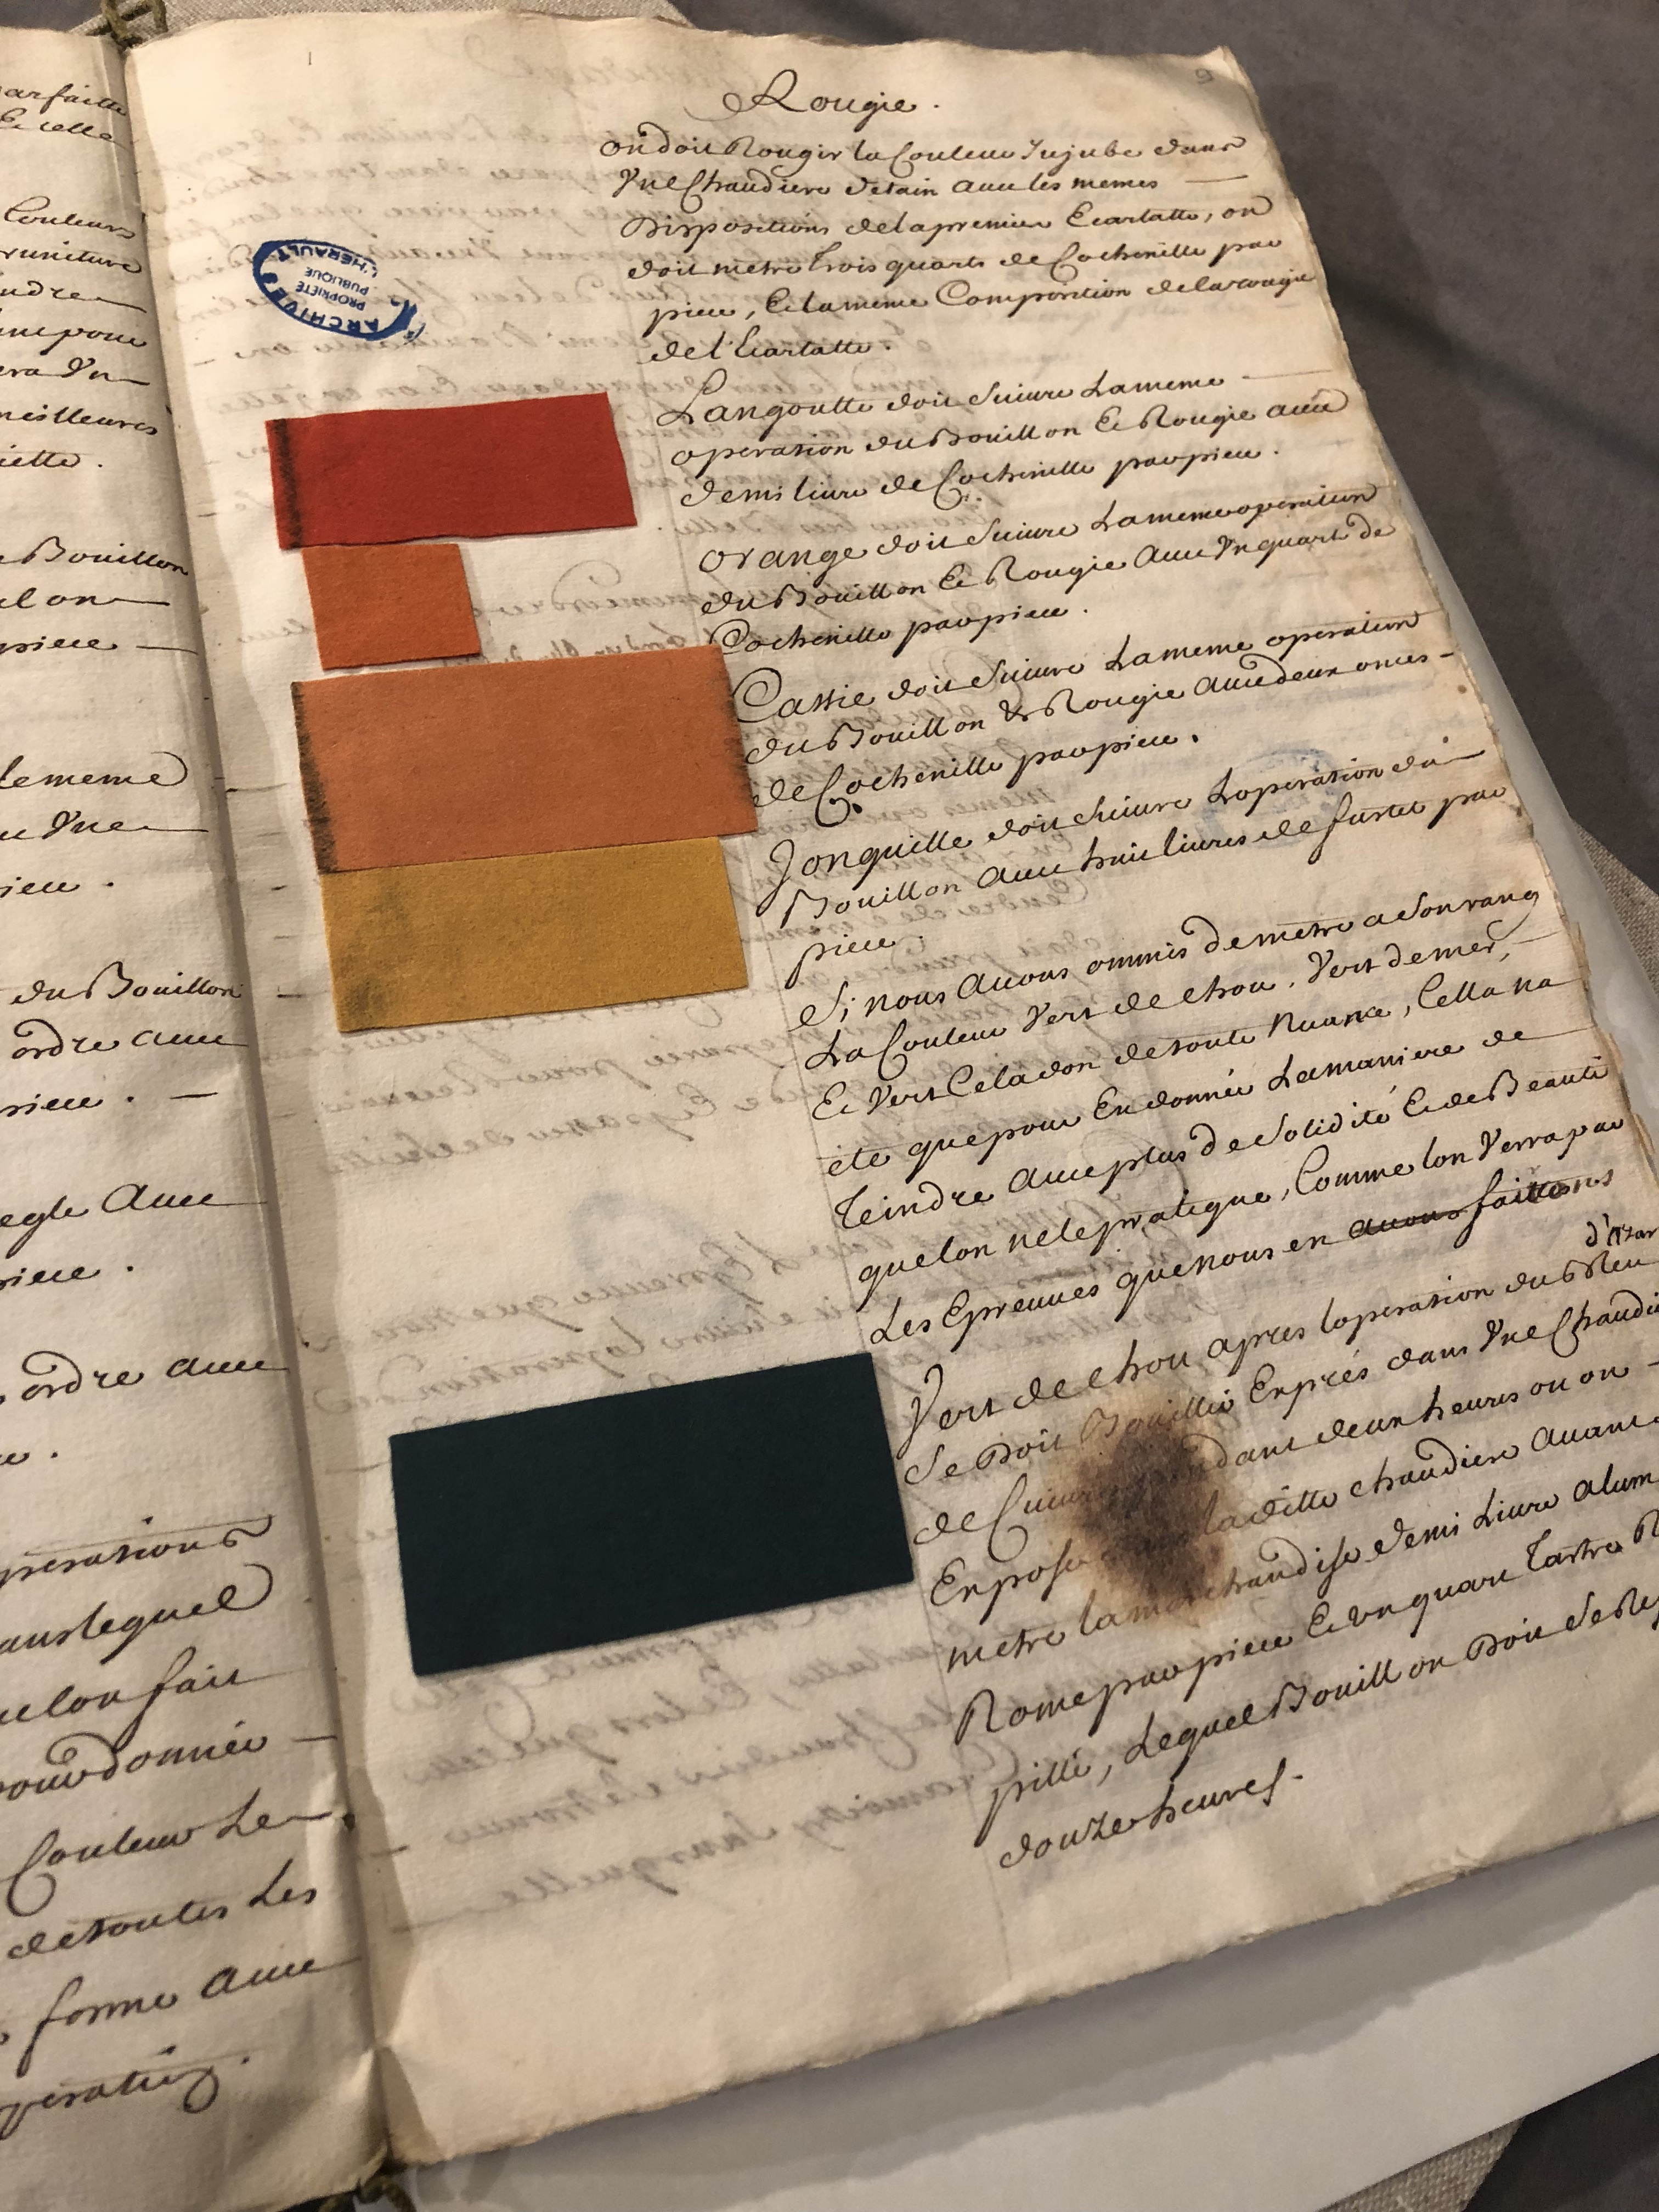 arfaitte
& celle
Couleurs
runiture
ndre
une pour
era Vn
meilleures
iette.
Bouillon
el on
piece
le meme
Vne
piece.
du Bouillon
ordre auec
piece.
egle Auec
piece.
ordre auec
operations
dans lequel
que lon fait
pour donnée
Couleur Le
de toutes Les
forme auec
operation.
9
Rougie.
on doit Rougir la Couleur Jujube dans
Vne Chaudiere detain auec les memes
Dispositions de la premiere Ecarlatte, on
doit metre trois quarts de Cochenille par
piece, & la meme Composition de la rougie
de l'Ecarlatte.
ARCHIVES
PROPRIÉTÉ
PUBLIQUE
L'HERAULT
Langoutte doit Suiure La meme
operation du Bouillon & Rougie auec
demi liure de Cochenille par piece.
Orange doit Suiure La meme operation
du Bouillon & Rougie Auec Vn quart de
Cochenille par piece.
Cassie doit Suiure La meme operation
du Bouillon & Rougie Auec deux onces
de Cochenille par piece.
Jonquille doit Suiure Loperation du
Bouillon Auec huit liures de fustet par
piece.
Si nous Auons ommis de metre a Son rang
La Couleur Vert de chou, Vert de mer,
& Vert Celadon de toute Nuance, Cella na
eté que pour En donnée La maniere de
teindre Auec plus de Solidité & de Beauté
que lon ne le pratique, Comme lon Verra par
Les Epreuues que nous en auons faittons
d'azur
Vert de chou apres loperation du Bleu
Se Doit Bouillir Exprés dans Vne Chaudie
de Cuiure pendant deux heures ou on
Expose la ditte chaudiere Auant
metre la marchandise demi Liure alum
Rome par piece & Vn quart Tartre R
pille, Lequel Bouillon Doit Se Re
douze heures.